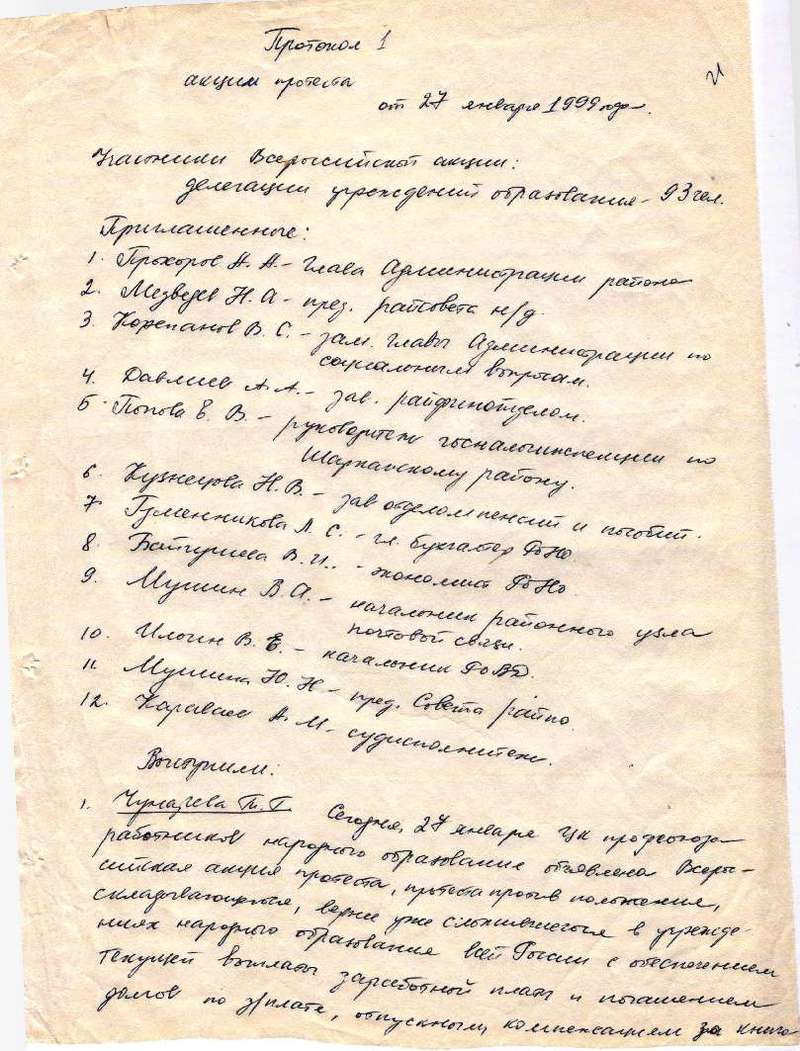 Протокол 1
21
акции протеста
от 27 января 1999 года.
Участники Всероссийской акции:
делегации учреждений образования - 93 чел.
Приглашенные:
1. Прохоров А.А. - Глава Администрации района
2. Медведев Н.А - пред. райсовета н/д.
3. Корепанов В.С. - зам. Главы Администрации по
социальным вопросам.
4. Давлиев А.А. - зав. райфинотделом.
5. Попова Е.В. - руководитель госналогинспекции по
Шарканскому району.
6 Кузнецова Н.В. - зав отделом пенсий и пособий.
7 Гуменникова Л.С. - гл. бухгалтер РоНо.
8. В.И. - экономист РоНо
9. Мушин В.А. - начальник районного узла
почтовой связи.
10. Илогин В.Е. - начальник РоВД.
11. Мушина Ю.Н - пред. Совета райпо.
12. Караваев А.М - судисполнитель.
Выступили:
1. П.Г. Сегодня, 27 января ЦК профсоюза
работников народного образования объявлена Всерос-
сийская акция протеста, протеста против положения,
складывающегося, вернее уже сложившегося в учрежде-
ниях народного образования всей России с обеспечением
текущей выплаты заработной платы и погашением
долгов по з/плате, отпускным, компенсациям за книго